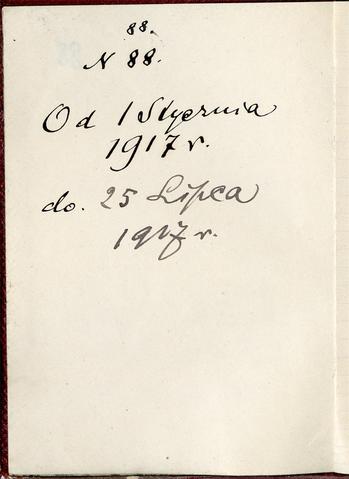 88.
N 88.
Od 1 Stycznia
1917 r.
do. 25 Lipca
1917 r.